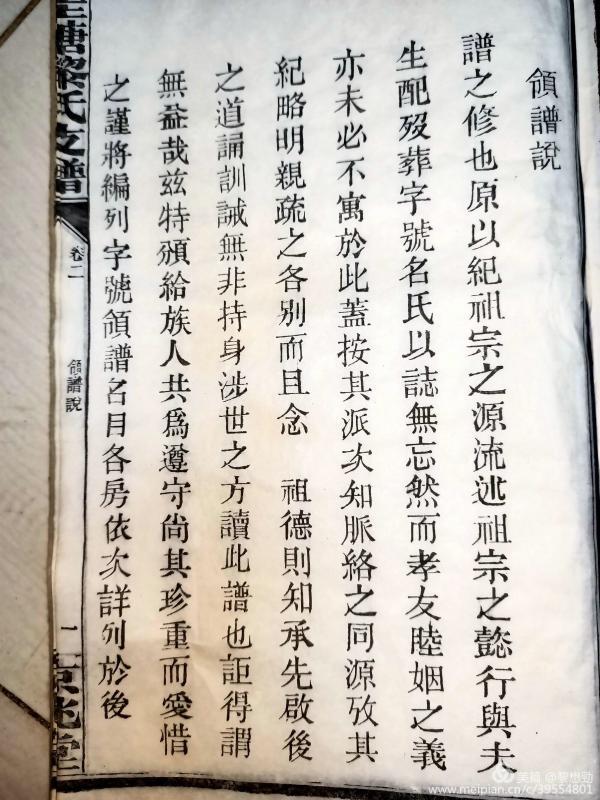 領譜說
譜之修也原以紀祖宗之源流述祖宗之懿行與夫
生配歿葬字號名氏以誌無忘然而孝友睦姻之義
亦未必不寓於此蓋按其派次知脈絡之同源攷其
紀略明親疏之各別而且念 祖德則知承先啟後
之道誦訓誡無非持身涉世之方讀此譜也詎得謂
無益哉兹特頒給族人共爲遵守尚其珍重而愛惜
之謹將編列字號領譜名目各房依次詳列於後
塘黎氏支譜
卷二
領譜說
一
京兆堂
美篇 @黎想勁
www.meipian.cn/c/39554801